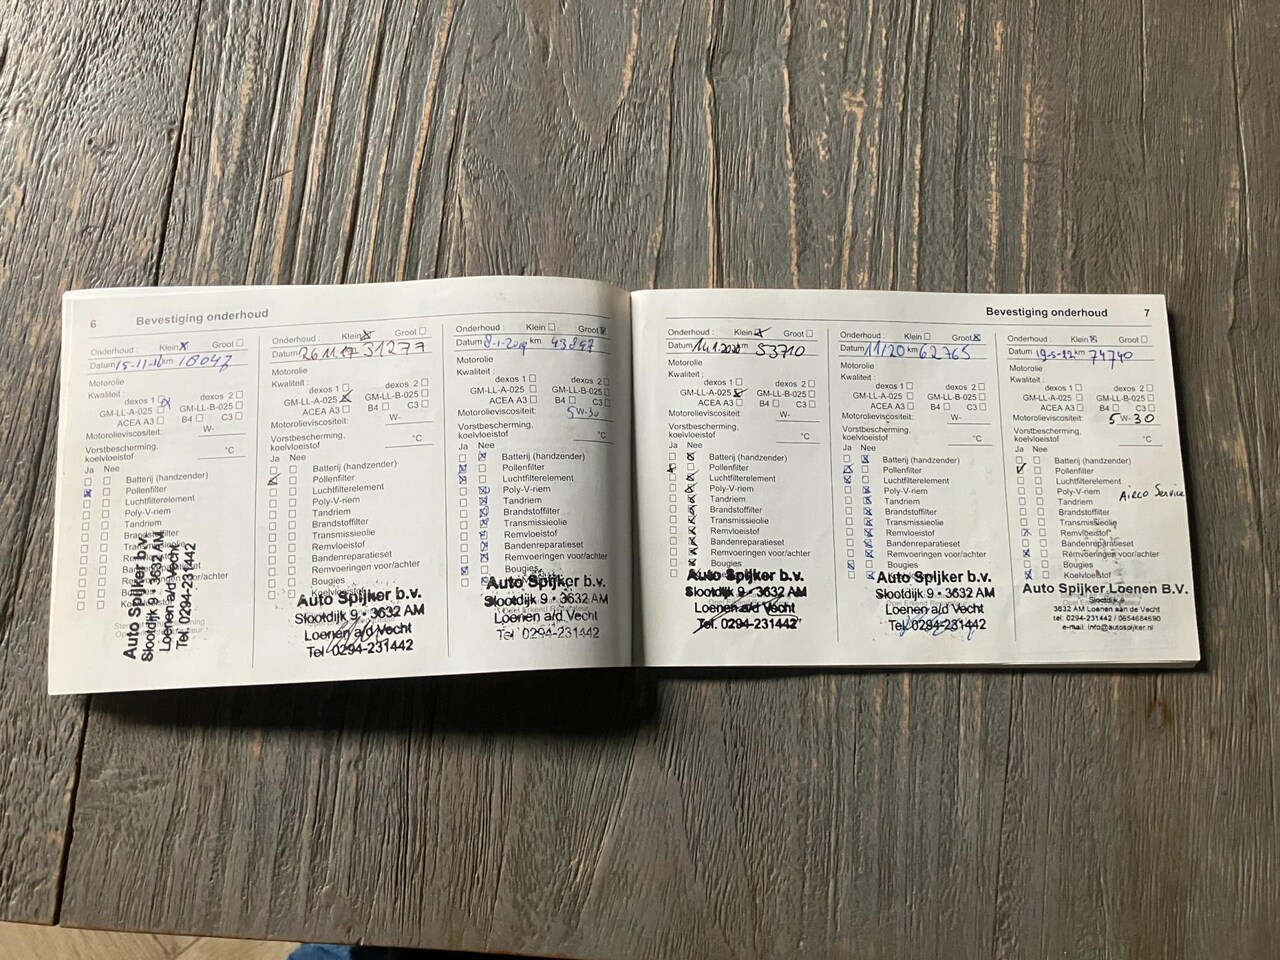 6 Bevestiging onderhoud
Onderhoud : Klein Groot
Datum 15-11-16 km 18047
Motorolie
Kwaliteit :
dexos 1 dexos 2
GM-LL-A-025 GM-LL-B-025
ACEA A3 B4 C3
Motorolieviscositeit: W-
Vorstbescherming,
koelvloeistof °C
Ja Nee
Batterij (handzender)
Pollenfilter
Luchtfilterelement
Poly-V-riem
Tandriem
Auto Spijker b.v.
Slootdijk 9 • 3632 AM
Loenen a/d Vecht
Tel. 0294-231442
Onderhoud : Klein Groot
Datum 26 11 17 31277
Motorolie
Kwaliteit :
dexos 1 dexos 2
GM-LL-A-025 GM-LL-B-025
ACEA A3 B4 C3
Motorolieviscositeit: W-
Vorstbescherming,
koelvloeistof °C
Ja Nee
Batterij (handzender)
Pollenfilter
Luchtfilterelement
Poly-V-riem
Tandriem
Brandstoffilter
Transmissieolie
Remvloeistof
Bandenreparatieset
Remvoeringen voor/achter
Bougies
Koelvloeistof
Auto Spijker b.v.
Slootdijk 9 • 3632 AM
Loenen a/d Vecht
Tel. 0294-231442
Onderhoud : Klein Groot
Datum 8-1-2019 km 43847
Motorolie
Kwaliteit :
dexos 1 dexos 2
GM-LL-A-025 GM-LL-B-025
ACEA A3 B4 C3
Motorolieviscositeit: 5W-30
Vorstbescherming,
koelvloeistof °C
Ja Nee
Batterij (handzender)
Pollenfilter
Luchtfilterelement
Poly-V-riem
Tandriem
Brandstoffilter
Transmissieolie
Remvloeistof
Bandenreparatieset
Remvoeringen voor/achter
Bougies
Auto Spijker b.v.
Slootdijk 9 • 3632 AM
Loenen a/d Vecht
Tel 0294-231442
Bevestiging onderhoud 7
Onderhoud : Klein Groot
Datum 14.1.2020 53710
Motorolie
Kwaliteit :
dexos 1 dexos 2
GM-LL-A-025 GM-LL-B-025
ACEA A3 B4 C3
Motorolieviscositeit: W-
Vorstbescherming,
koelvloeistof °C
Ja Nee
Batterij (handzender)
Pollenfilter
Luchtfilterelement
Poly-V-riem
Tandriem
Brandstoffilter
Transmissieolie
Remvloeistof
Bandenreparatieset
Remvoeringen voor/achter
Bougies
Auto Spijker b.v.
Slootdijk 9 • 3632 AM
Loenen a/d Vecht
Tel. 0294-231442
Onderhoud : Klein Groot
Datum 11/20 km 62765
Motorolie
Kwaliteit :
dexos 1 dexos 2
GM-LL-A-025 GM-LL-B-025
ACEA A3 B4 C3
Motorolieviscositeit: W-
Vorstbescherming,
koelvloeistof °C
Ja Nee
Batterij (handzender)
Pollenfilter
Luchtfilterelement
Poly-V-riem
Tandriem
Brandstoffilter
Transmissieolie
Remvloeistof
Bandenreparatieset
Remvoeringen voor/achter
Bougies
Auto Spijker b.v.
Slootdijk 9 • 3632 AM
Loenen a/d Vecht
Tel. 0294-231442
Onderhoud : Klein Groot
Datum 19-5-22 km 74740
Motorolie
Kwaliteit :
dexos 1 dexos 2
GM-LL-A-025 GM-LL-B-025
ACEA A3 B4 C3
Motorolieviscositeit: 5W-30
Vorstbescherming,
koelvloeistof °C
Ja Nee
Batterij (handzender)
Pollenfilter
Luchtfilterelement
Poly-V-riem Airco Service
Tandriem
Brandstoffilter
Transmissieolie
Remvloeistof
Bandenreparatieset
Remvoeringen voor/achter
Bougies
Koelvloeistof
Auto Spijker Loenen B.V.
Slootdijk 9
3632 AM Loenen aan de Vecht
tel: 0294-231442 / 0654684690
e-mail: info@autospijker.nl